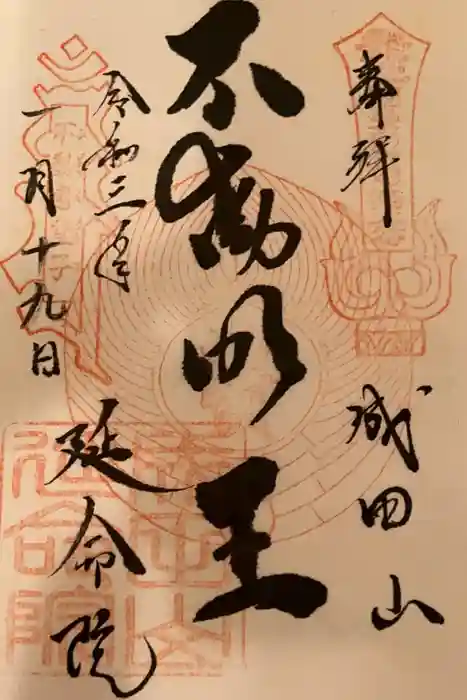 奉拝
成田山
不動明王
令和三年
一月十九日
延命院